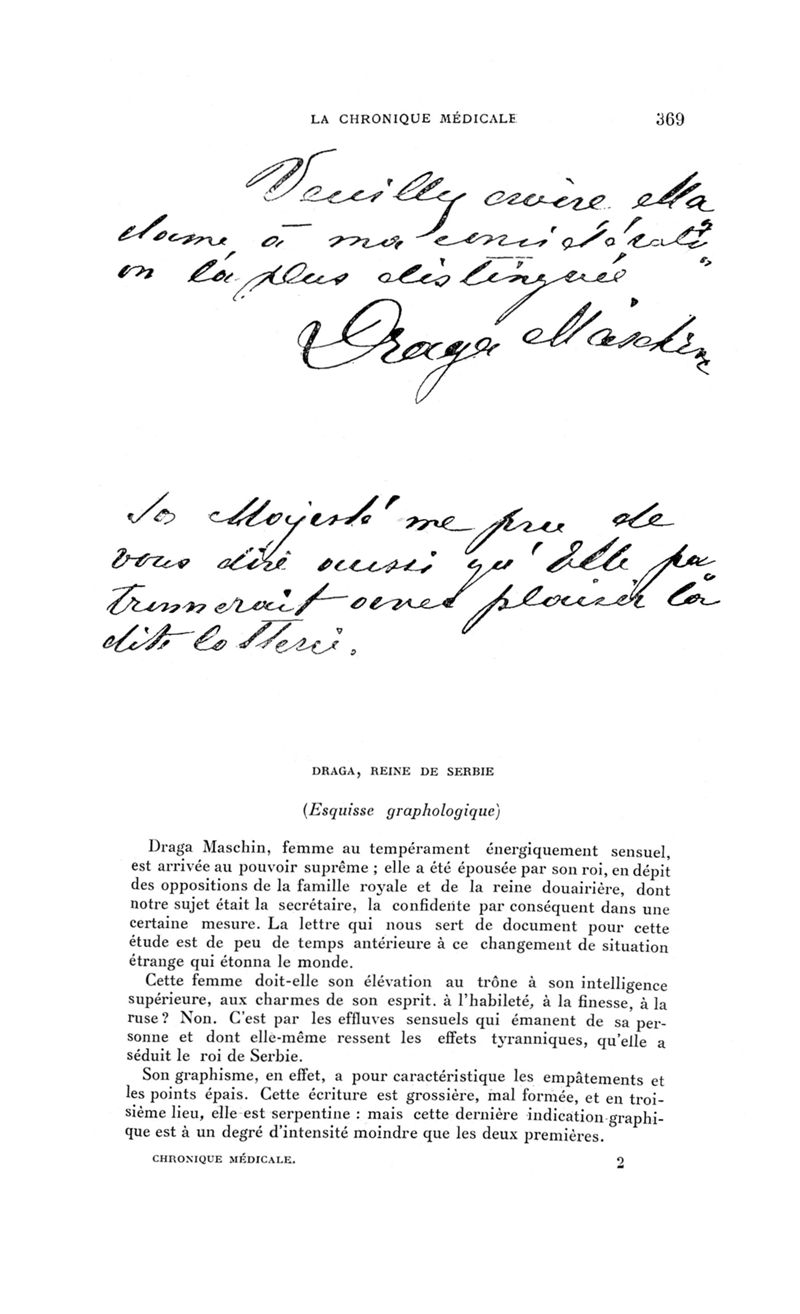 LA CHRONIQUE MÉDICALE 369
Veuilly croire Ma
dame à ma considérati
on la plus distinguée
Draga Maschin
Sa Majesté me prie de
vous dire aussi qu'Elle pa
tronnerait avec plaisir la
dite lotterie.
DRAGA, REINE DE SERBIE
(Esquisse graphologique)
Draga Maschin, femme au tempérament énergiquement sensuel,
est arrivée au pouvoir suprême ; elle a été épousée par son roi, en dépit
des oppositions de la famille royale et de la reine douairière, dont
notre sujet était la secrétaire, la confidente par conséquent dans une
certaine mesure. La lettre qui nous sert de document pour cette
étude est de peu de temps antérieure à ce changement de situation
étrange qui étonna le monde.
Cette femme doit-elle son élévation au trône à son intelligence
supérieure, aux charmes de son esprit. à l'habileté, à la finesse, à la
ruse ? Non. C'est par les effluves sensuels qui émanent de sa per-
sonne et dont elle-même ressent les effets tyranniques, qu'elle a
séduit le roi de Serbie.
Son graphisme, en effet, a pour caractéristique les empâtements et
les points épais. Cette écriture est grossière, mal formée, et en troi-
sième lieu, elle est serpentine : mais cette dernière indication graphi-
que est à un degré d'intensité moindre que les deux premières.
CHRONIQUE MÉDICALE. 2